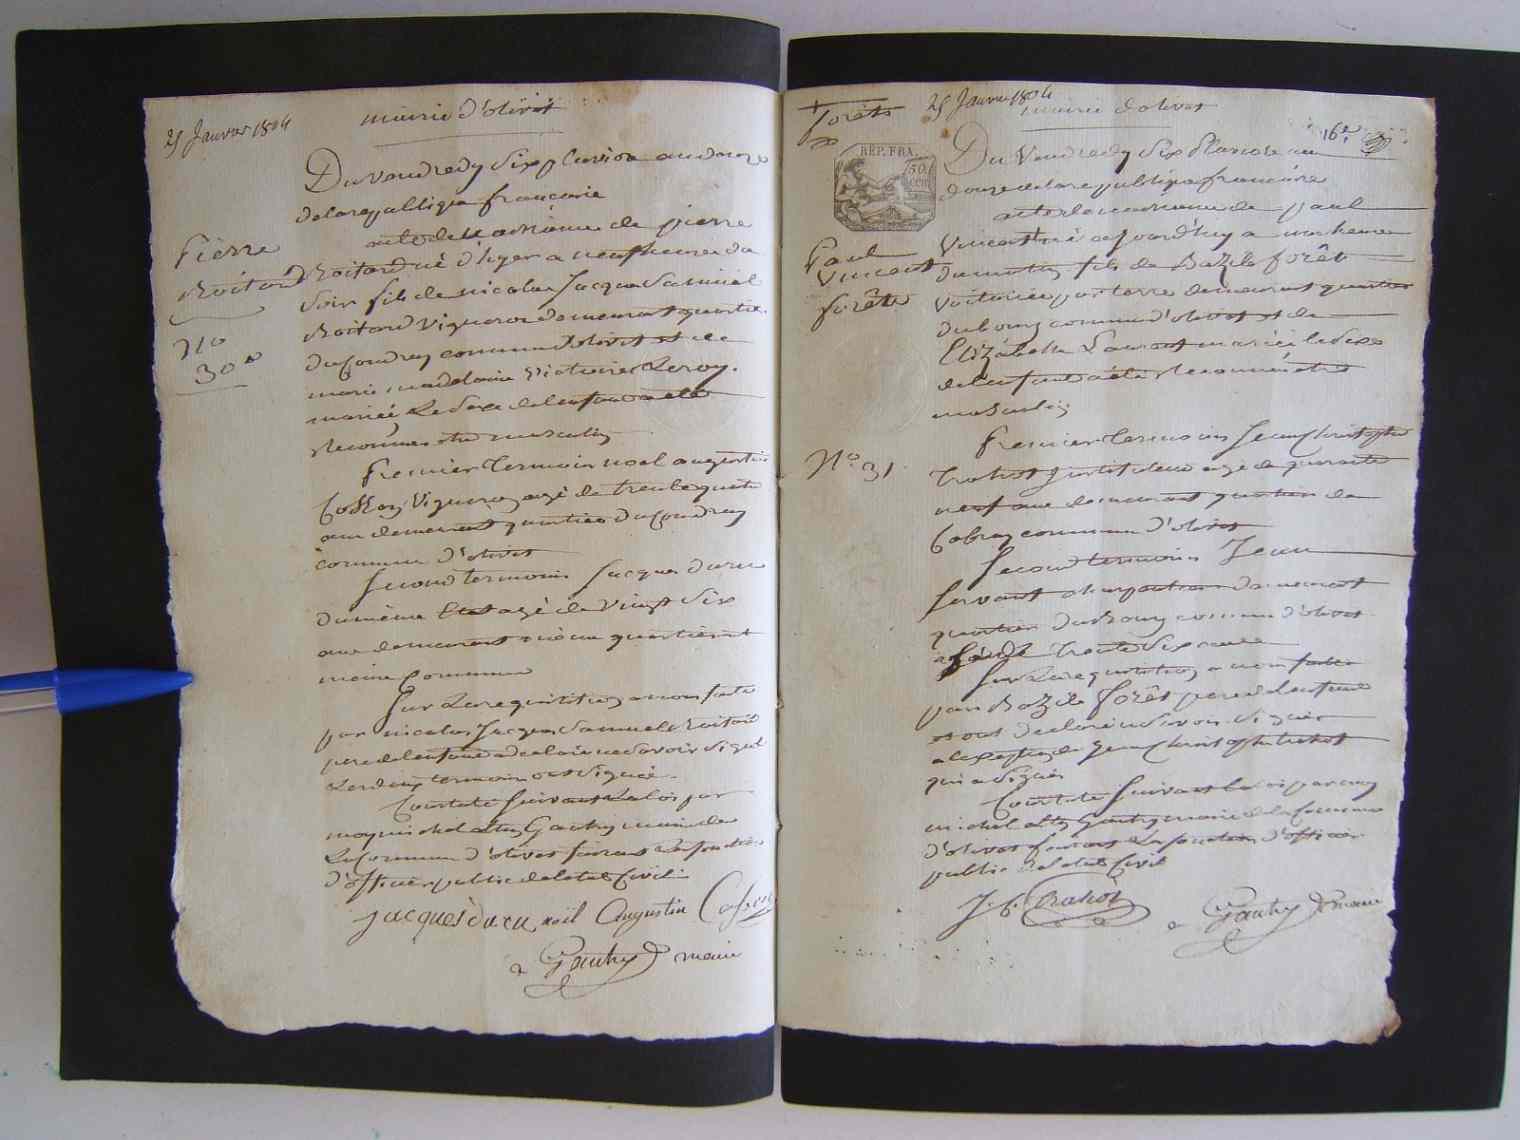 25 Janvier 1804
mairie d'olivet
Du vendredy six pluviose an douze
de la republique francaise
acte de naissance de pierre
Boitard né d'hyer a neuf heures du
soir fils de nicolas Jacques Samuel
Boitard vigneron demeurant quartier
du Coudray commune d'olivet et de
marie madelaine victoire Leroy
mariés Le Sexe de lenfant a eté
Reconnu etre masculin
pierre
Boitard
No
30e
Premier temoin noel augustin
vigneron agé de trente quatre
ans demeurant quartier du Coudray
commune d'olivet
Second temoin Jacques daru
du même Etat agé de vingt six
ans demeurant même quartier et
même Commune
Sur La requisition a nous faite
par nicolas Jacques Samuel Boitard
pere de lenfant a declaré ne savoir signé
Les deux temoins ont signé
Constaté suivant La loi par
moy michel Gauthy maire de
La Commune d'olivet faisant Les fonctions
d'officier public de letat Civil
Jacques daru noël Augustin
Gauthy maire
forêts
25 Janvier 1804
mairie d'olivet
16e
REP. FRA.
50
cen
Du vendredy six Pluviose an
douze de la republique francaise
acte de naissance de paul
Vincent né aujourd'huy a une heure
du matin fils de Bazile forêt
voiturier par terre demeurant quartier
du bourg commune d'olivet et de
Elizabethe Laurent mariés le sexe
de lenfant a eté Reconnu etre
masculin
Paul
Vincent
forêts
No. 31
Premier temoin Jean Christophe
Trahot Instituteur agé de quarante
neuf ans demeurant quartier de
commune d'olivet
Second temoin Jean
Servant charpentier demeurant
quartier du Bourg commune d'olivet
agé de trente six ans
Sur La requisition a nous faite
par Bazile forêt pere de lenfant
et ont declaré ne savoir signer
a lexception de Jean Christophe trahot
qui a signé
Constaté suivant la loi par moy
michel Gauthy maire de la Commune
d'olivet faisant Les fonctions d'officier
public de letat Civil
J. C. Trahot
Gauthy maire